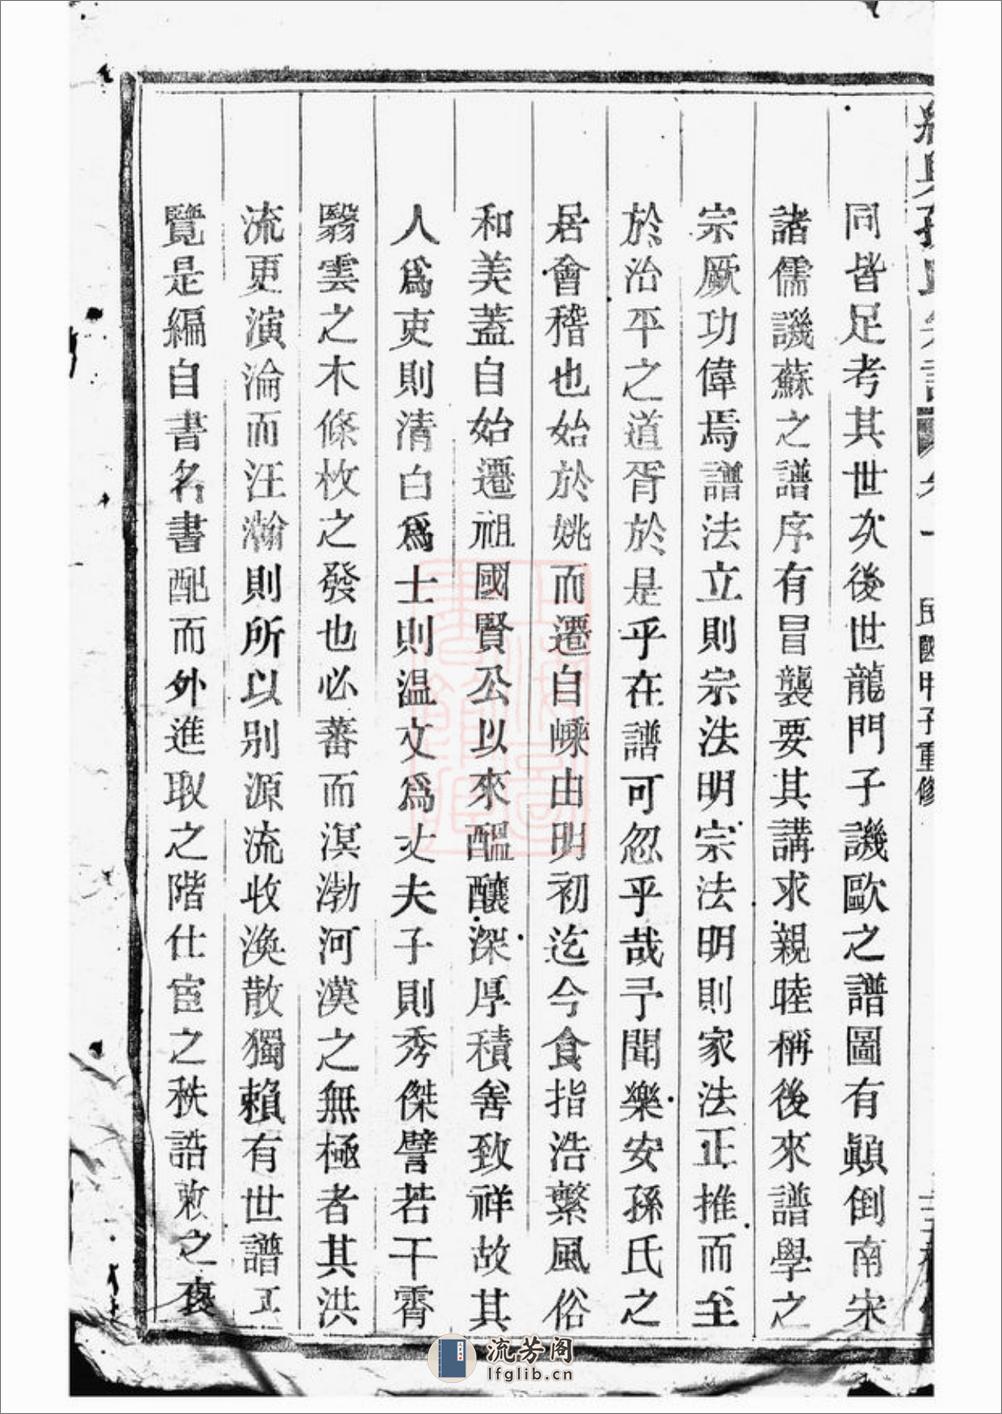 同皆足考其世次後世龍門子譏歐之譜圖有顚倒南宋
諸儒譏蘇之譜序有冒襲要其講求親睦稱後來譜學之
宗厥功偉焉譜法立則宗法明宗法明則家法正推而至
於治平之道胥於是乎在譜可忽乎哉予聞樂安孫氏之
居會稽也始於姚而遷自嵊由明初迄今食指浩繁風俗
和美蓋自始遷祖國賢公以來醖釀深厚積善致祥故其
人爲吏則清白爲士則温文爲丈夫子則秀傑譬若干霄
翳雲之木條枚之發也必蕃而溟渤河漢之無極者其洪
流更演淪而汪瀚則所以别源流收渙散獨賴有世譜
覽是編自書名書配而外進取之階仕宦之秩誥敕之褒
民國甲子重修
流芳阁
lfglib.cn